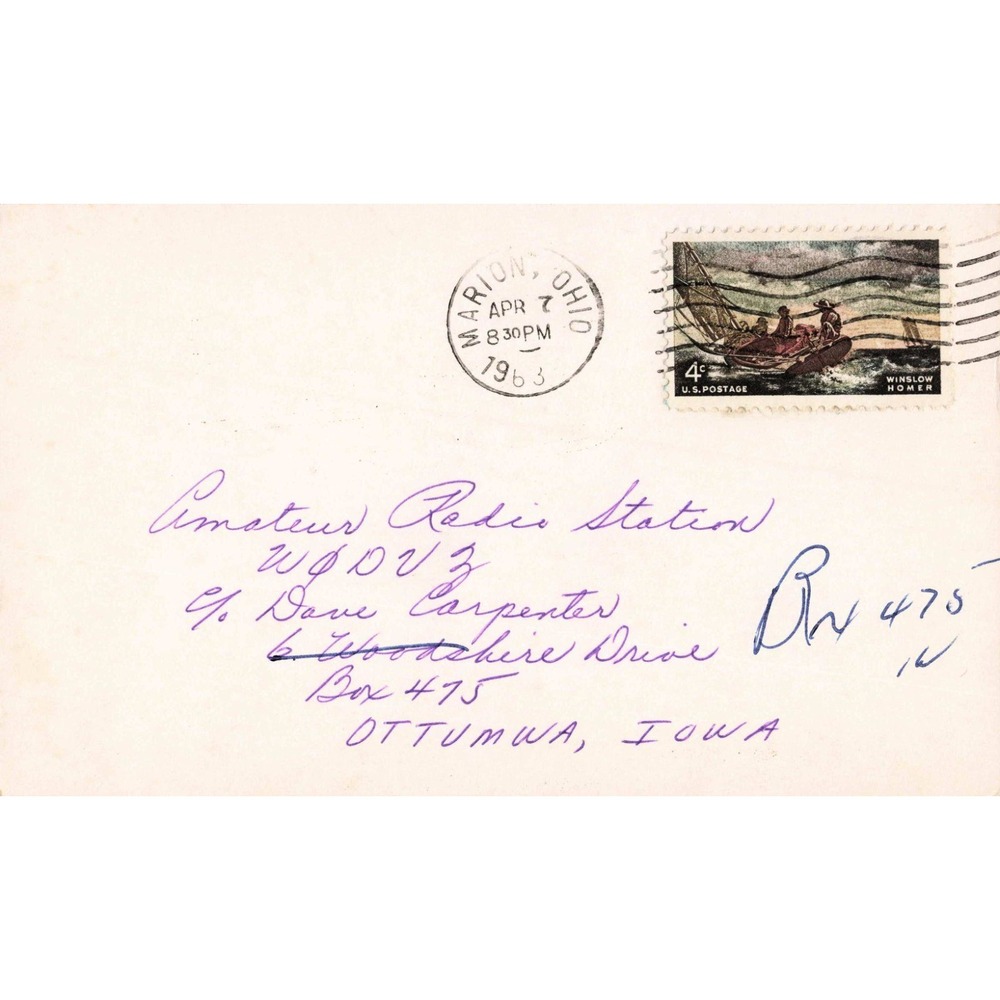 MARION, OHIO
APR 7
8 30 PM
1963
4c
U.S. POSTAGE
WINSLOW
HOMER
Amateur Radio Station
WØDVZ
c/o Dave Carpenter
6 Woodshire Drive
Box 475
OTTUMWA, IOWA
Box 475